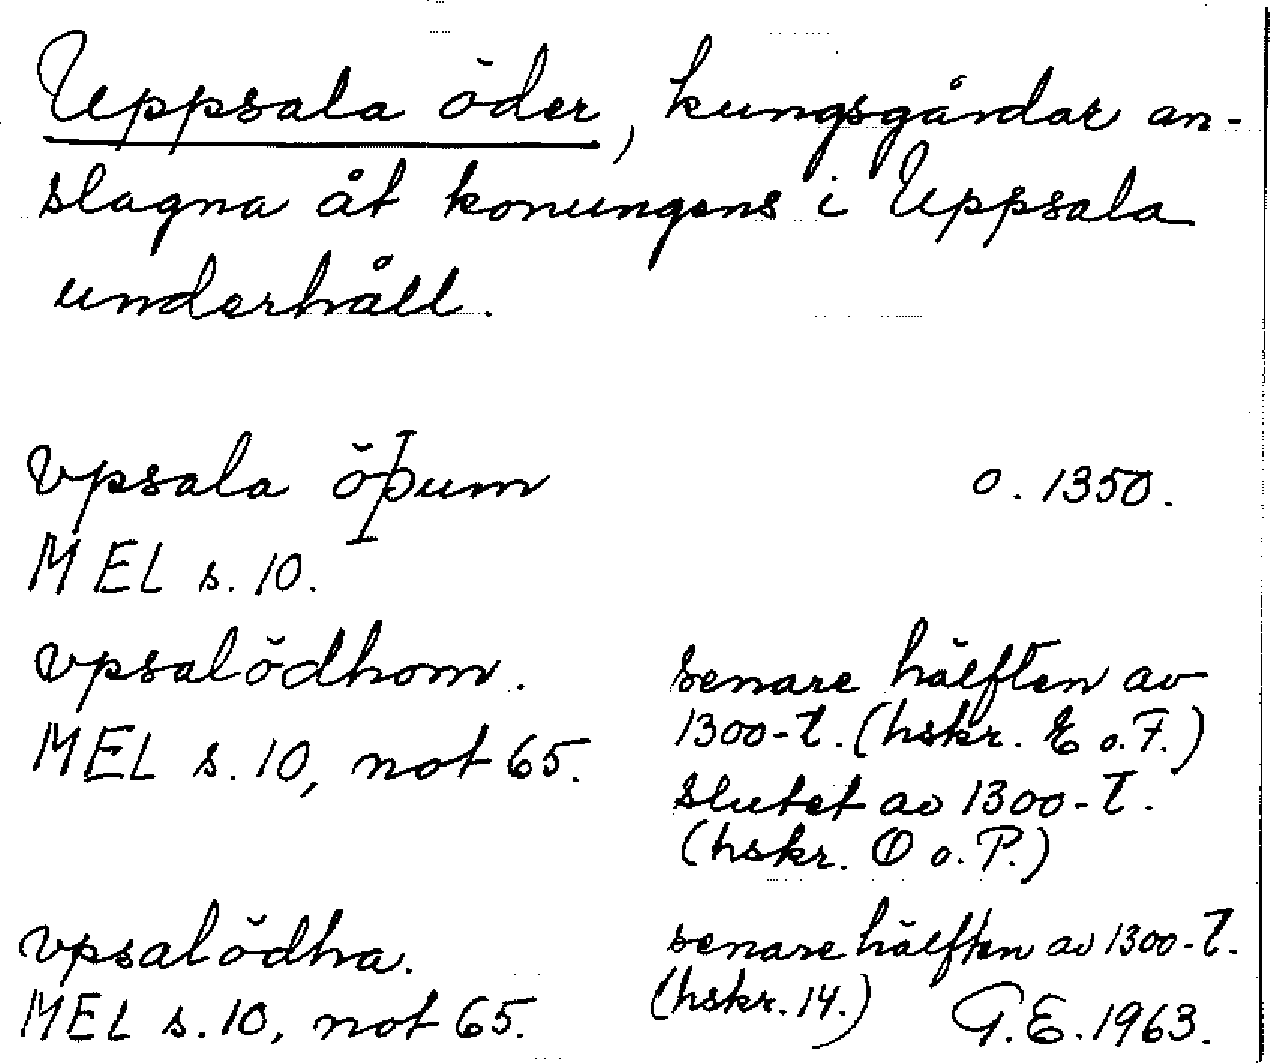 Uppsala öder, kungsgårdar an-
slagna åt konungens i Uppsala
underhåll.
vpsala öþum o. 1350.
MEL s. 10.
vpsalödhom. senare hälften av
1300-t. (hskr. E o. F.)
MEL s. 10, not 65.
slutet av 1300-t.
(hskr. O o. P.)
vpsalödha. senare hälften av 1300-t.
MEL s. 10, not 65. (hskr. 14.) G.E. 1963.